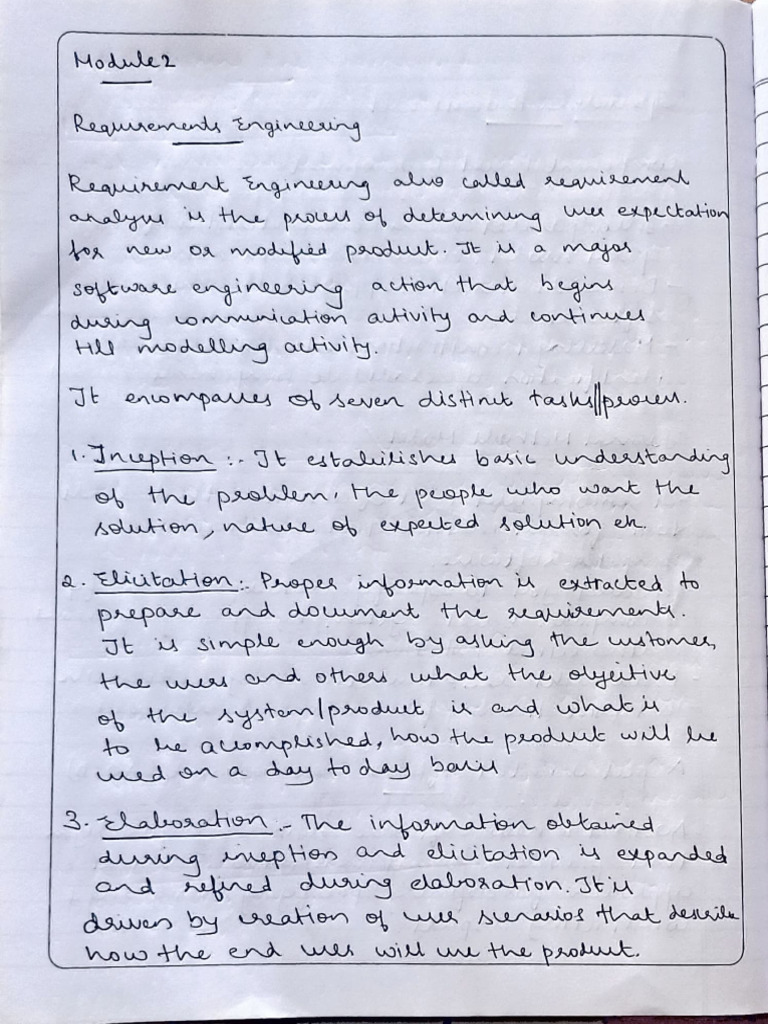 Module 2
Requirements Engineering
Requirement Engineering also called requirement
analysis is the process of determining user expectation
for new or modified product. It is a major
software engineering action that begins
during communication activity and continues
till modelling activity.
It encompasses of seven distinct tasks||process.
1. Inception :- It establishes basic understanding
of the problem, the people who want the
solution, nature of expected solution etc.
2. Elicitation :- Proper information is extracted to
prepare and document the requirements.
It is simple enough by asking the customer,
the users and others what the objective
of the system/product is and what is
to be accomplished, how the product will be
used on a day to day basis
3. Elaboration :- The information obtained
during inception and elicitation is expanded
and refined during elaboration. It is
driven by creation of user scenarios that describe
how the end user will use the product.